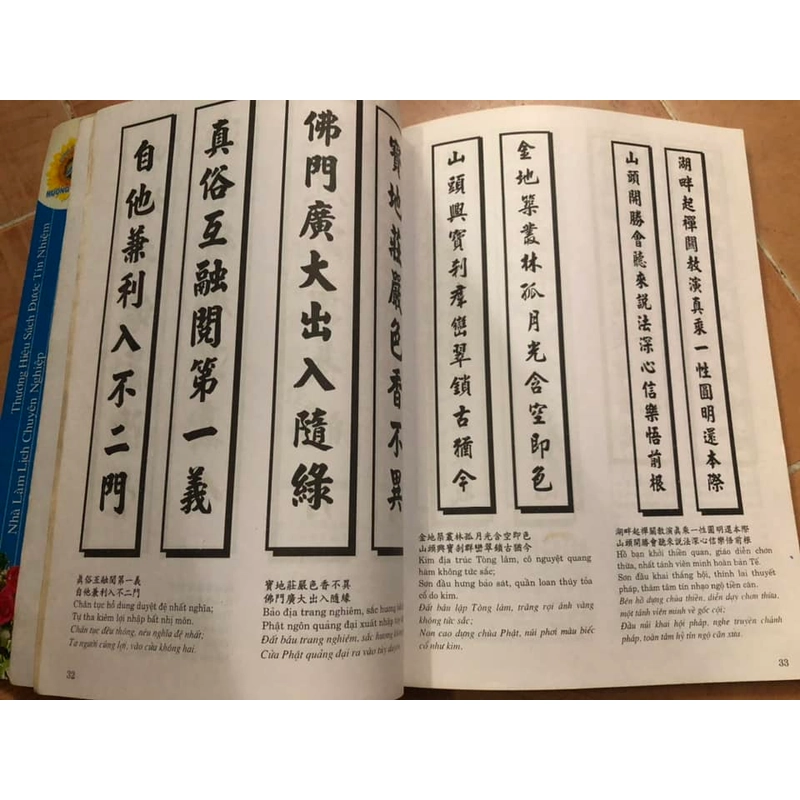 HƯỚNG
Thương Hiệu Sách Được Tín Nhiệm
Nhà Làm Lịch Chuyên Nghiệp
寶地莊嚴色香不異
佛門廣大出入隨緣
真俗互融閱第一義
自他兼利入不二門
眞俗互融閱第一義
自他兼利入不二門
Chân tục hổ dung duyệt đệ nhất nghĩa;
Tự tha kiêm lợi nhập bất nhị môn.
Chân tục đều thông, nêu nghĩa đệ nhất;
Ta người cùng lợi, vào cửa không hai.
寶地莊嚴色香不異
佛門廣大出入隨緣
Bảo địa trang nghiêm, sắc hương bất
Phật ngôn quảng đại xuất nhập tùy
Đất báu trang nghiêm, sắc hương không
Cửa Phật quảng đại ra vào tùy duyên.
32
湖畔起禪關教演真乘一性圓明還本際
山頭開勝會聽來説法深心信樂悟前根
金地築叢林孤月光含空即色
山頭興寶刹羣巒翠鎖古猶今
金地築叢林孤月光含空即色
山頭興寶刹群巒翠鎖古猶今
Kim địa trúc Tòng lâm, cô nguyệt quang
hàm không tức sắc;
Sơn đầu hưng bảo sát, quần loan thúy tỏa
cổ do kim.
Đất báu lập Tòng lâm, trăng rọi ánh vàng
không tức sắc;
Non cao dựng chùa Phật, núi phơi màu biếc
cổ như kim.
湖畔起禪關教演眞乘一性圓明還本際
山頭開勝會聽來說法深心信樂悟前根
Hồ bạn khởi thiền quan, giáo diễn chơn
thừa, nhất tánh viên minh hoàn bản Tế.
Sơn đầu khai thắng hội, thính lai thuyết
pháp, thâm tâm tín nhạo ngộ tiền căn.
Bên hồ dựng chùa thiền, diễn dạy chơn thừa,
một tánh viên minh về gốc cội;
Đầu núi khai hội pháp, nghe truyền chánh
pháp, toàn tâm hỷ tín ngộ căn xưa.
33